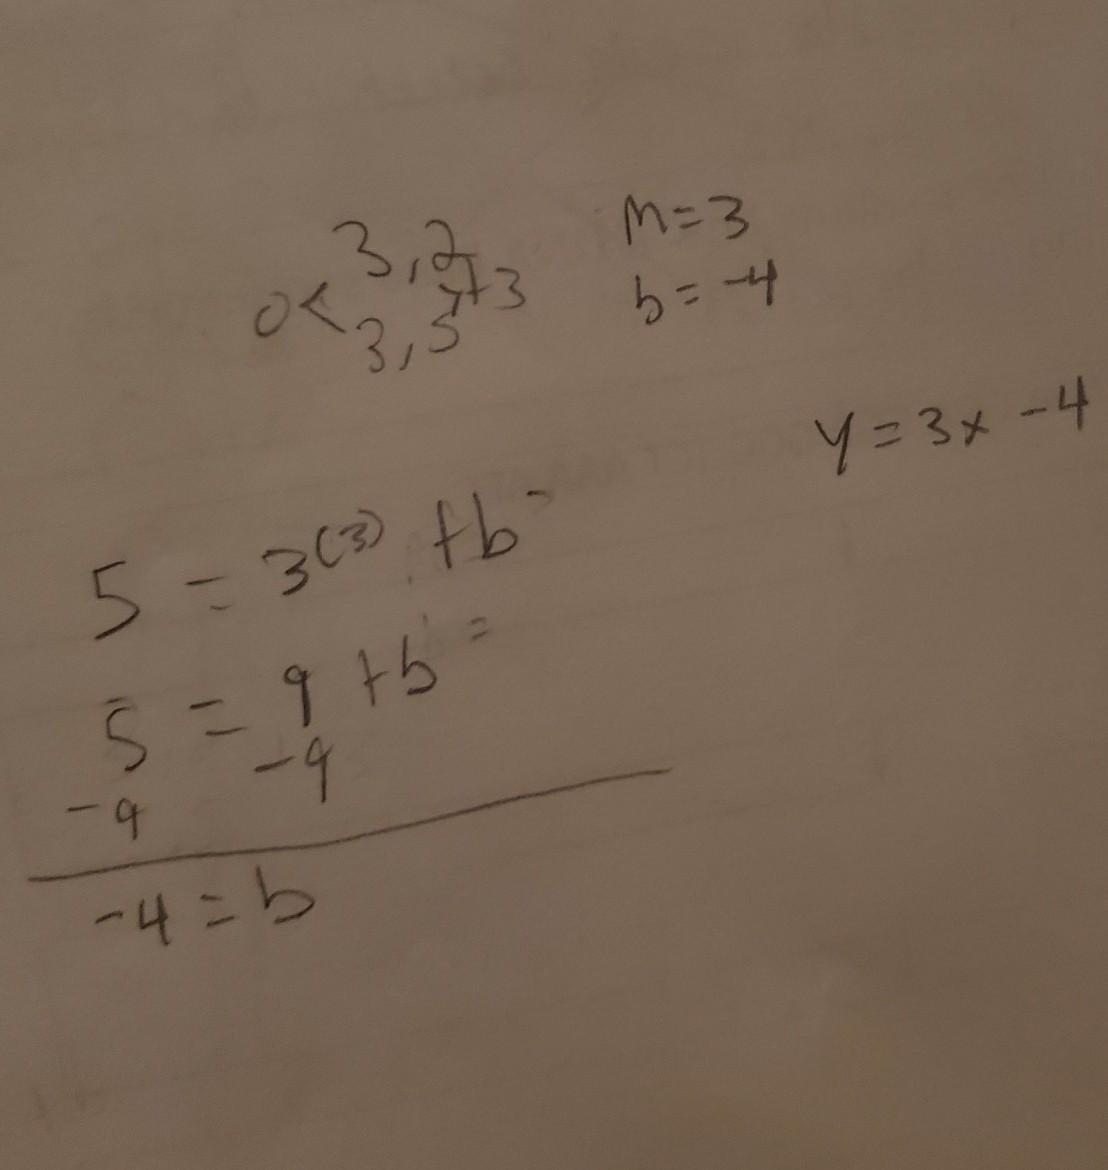 3,2
0< +3
3,5
m=3
b=-4
y=3x-4
5 = 3(3) +b
5 = 9 +b =
-9 -9
-4=b